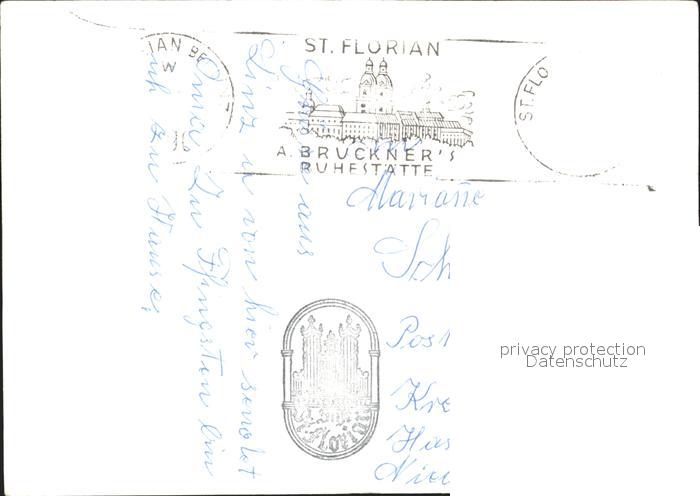 IAN BE
W
ST. FLORIAN
A. BRUCKNER'S
RUHESTÄTTE
ST. FLO
aus
Linz u von hier sendet
Oma Zu Pfingsten bin
ich zu Hause.
Marianne
Sch
Post
Kre
Has
Nie
St. Florian
privacy protection
Datenschutz